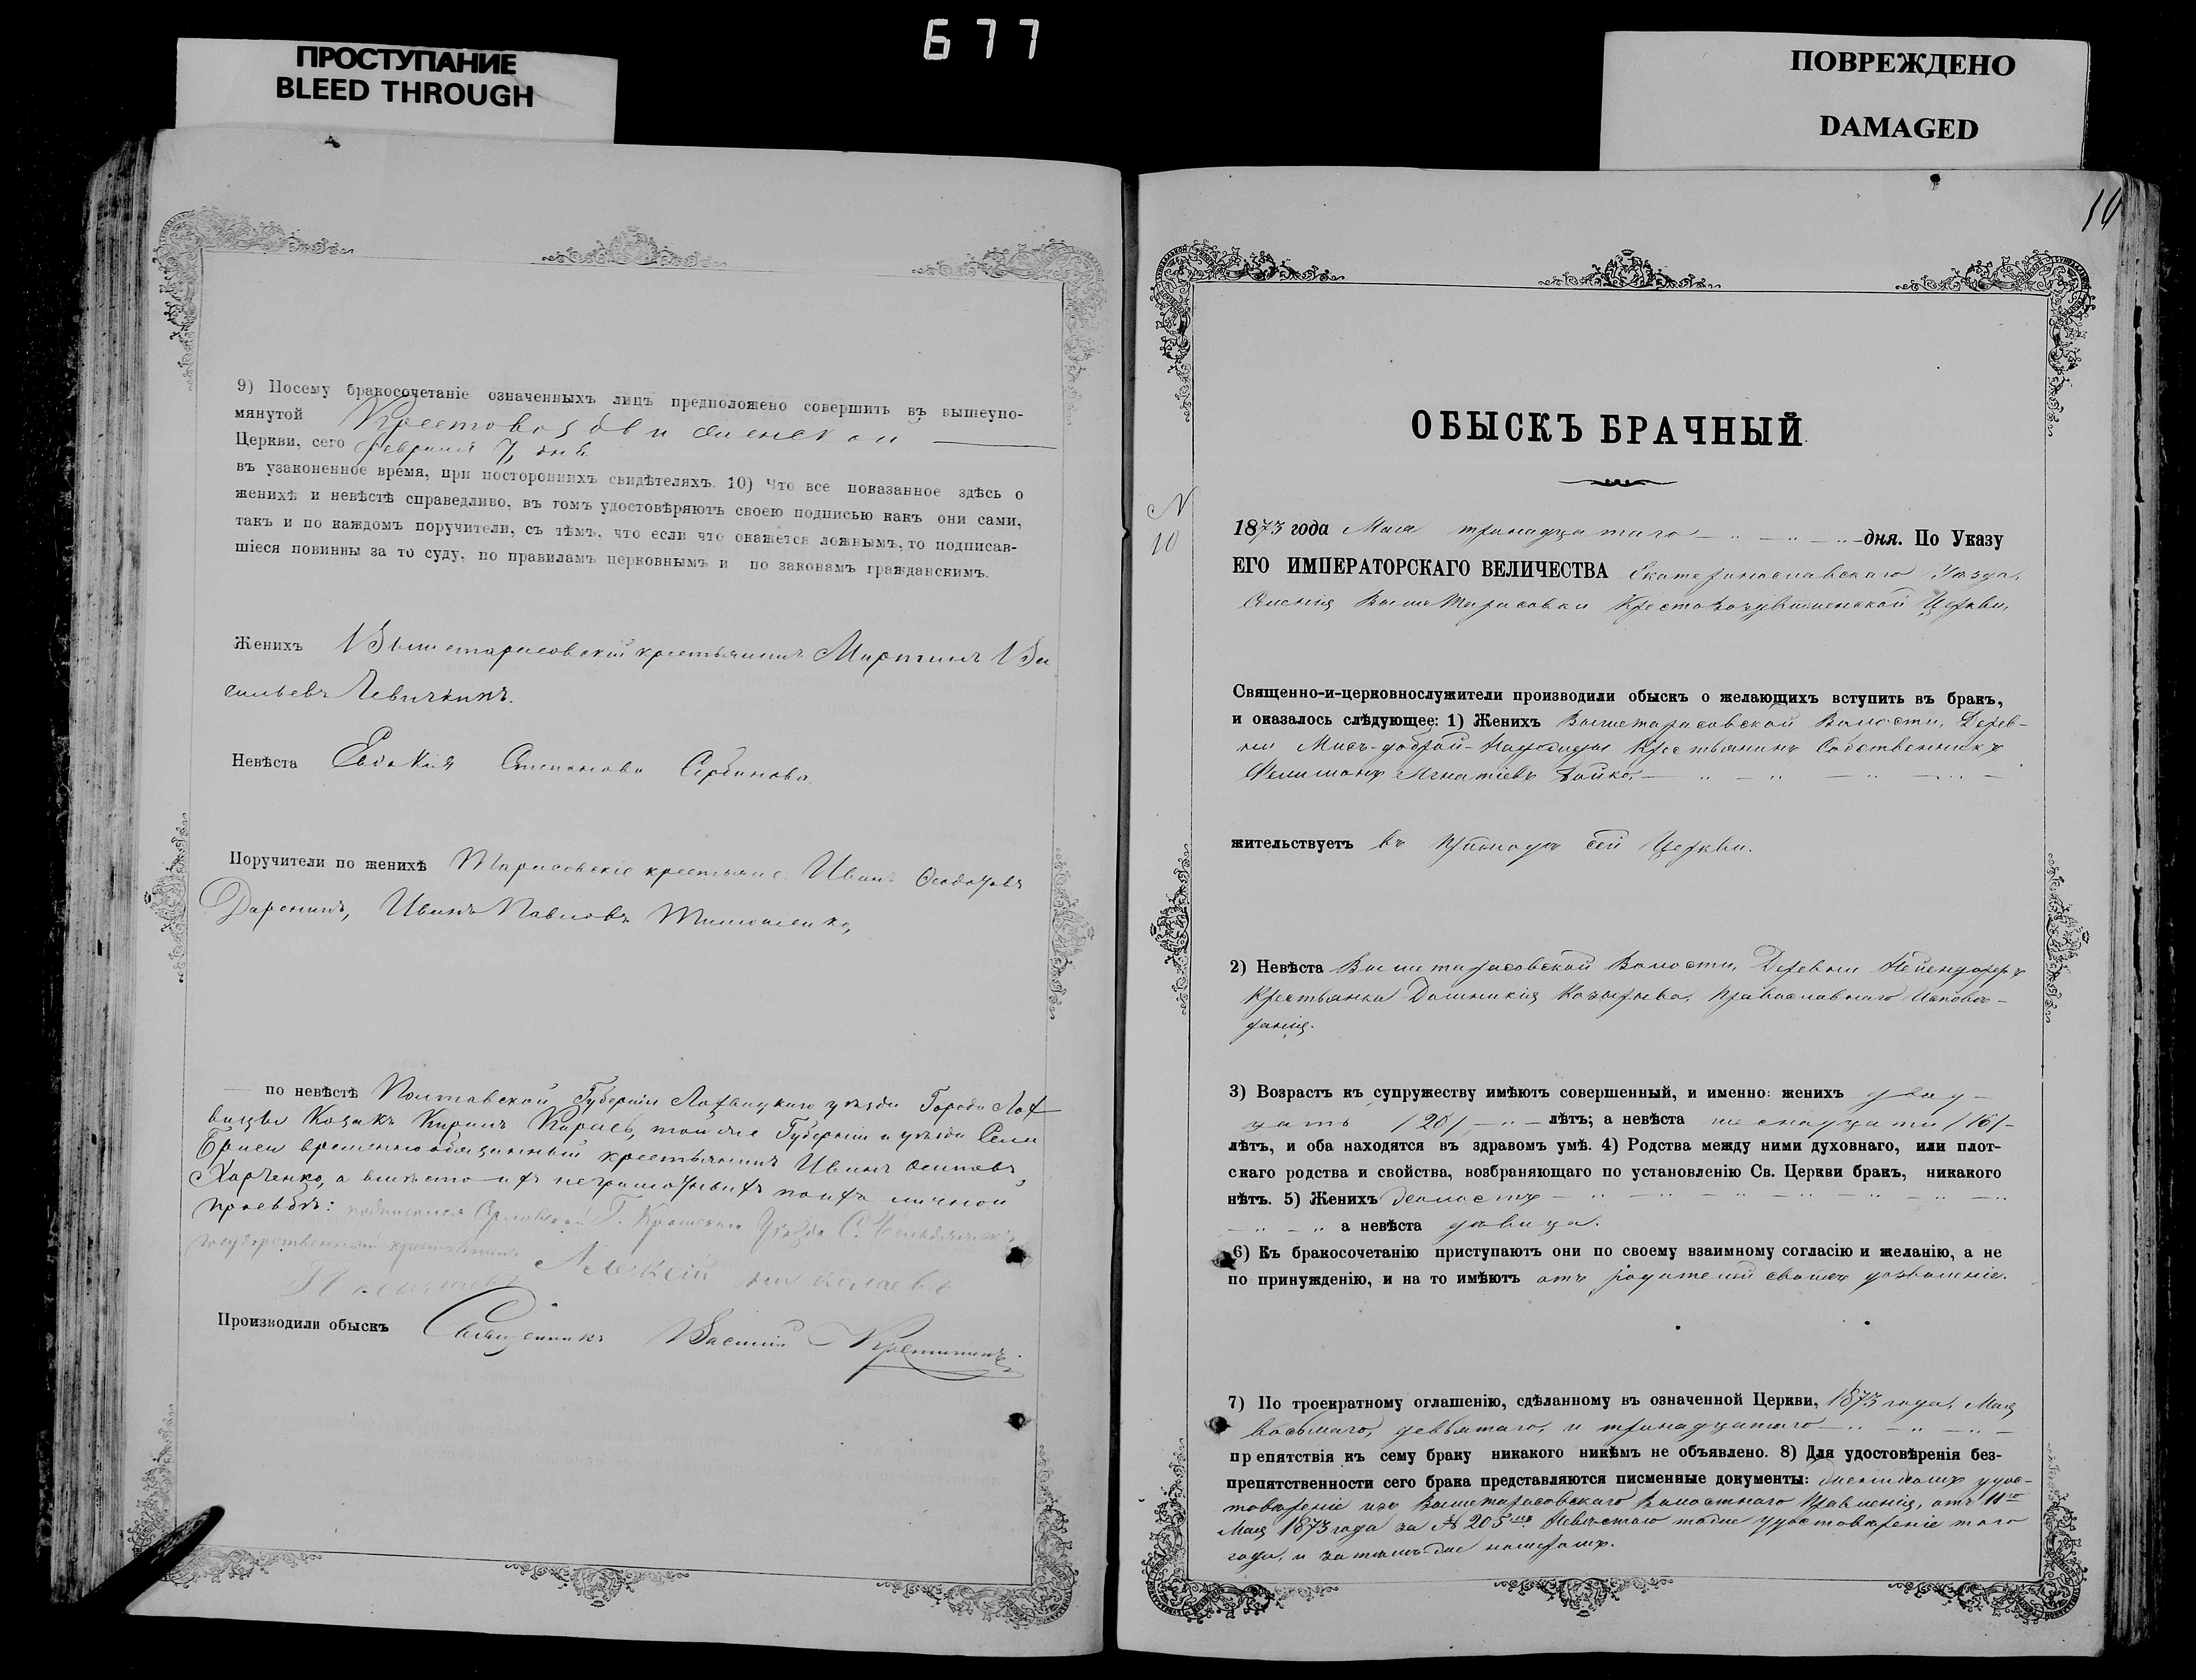 677
ПРОСТУПАНИЕ
BLEED THROUGH
ПОВРЕЖДЕНО
DAMAGED
9) Посему бракосочетаніе означенныхъ лицъ предположено совершить въ вышеупо-
мянутой Крестовоздвиженской
Церкви, сего февраля 7, дня
въ узаконенное время, при постороннихъ свидѣтеляхъ. 10) Что все показанное здѣсь о
женихѣ и невѣстѣ справедливо, въ томъ удостовѣряютъ своею подписью какъ они сами,
такъ и по каждомъ поручители, съ тѣмъ, что если что окажется ложнымъ, то подписав-
шіеся повинны за то суду, по правиламъ церковнымъ и по законамъ гражданскимъ.
Женихъ Вышетарасовскій крестьянинъ Мартинъ Ва
сильевъ
Невѣста Евдокия Степанова Сербинова
Поручители по женихѣ Тарасовскіе крестьяне: Иванъ
Иванъ Павловъ Тимошенко,
по невѣстѣ Полтавской Губерніи Лохвицкаго уѣзда Города Лох
вицы Козакъ Кирилъ той же Губерніи и уѣзда Села
временно обязанный крестьянинъ Иванъ Осиповъ
Харченко, а вмѣсто ихъ неграмотныхъ по ихъ личной
прозьбѣ:
Алексѣй
Производили обыскъ Священникъ Василій
ОБЫСКЪ БРАЧНЫЙ
N
10
1873 года Мая тринадцатаго дня. По Указу
ЕГО ИМПЕРАТОРСКАГО ВЕЛИЧЕСТВА Екатеринославскаго Уѣзда,
Селенія Вышетарасовки Крестовоздвиженской Церкви,
Священно-и-церковнослужители производили обыскъ о желающихъ вступить въ бракъ,
и оказалось слѣдующее: 1) Женихъ Вышетарасовской Волости, Дерев-
ни Мись-доброй-Надежды Крестьянинъ Собственникъ
Филимонъ Игнатіевъ Бойко,
жительствуетъ въ приходѣ сей Церкви.
2) Невѣста Вышетарасовской Волости, Деревни Нейендорфъ
Крестьянка Домникія Козырева, Православнаго Исповѣ-
данія.
3) Возрастъ къ супружеству имѣютъ совершенный, и именно: женихъ двад-
цать /20/ лѣтъ; а невѣста шеснадцати /16/
лѣтъ, и оба находятся въ здравомъ умѣ. 4) Родства между ними духовнаго, или плот-
скаго родства и свойства, возбраняющаго по установленію Св. Церкви бракъ, никакого
нѣтъ. 5) Женихъ холостъ
а невѣста дѣвица.
6) Къ бракосочетанію приступаютъ они по своему взаимному согласію и желанію, а не
по принужденію, и на то имѣютъ отъ родителей своихъ дозволеніе.
7) По троекратному оглашенію, сдѣланному въ означенной Церкви, 1873 года, Мая
восьмаго, девятаго, и тринадцатаго
препятствія къ сему браку никакого никѣмъ не объявлено. 8) Для удостовѣренія без-
препятственности сего брака представляются писменные документы: Женихомъ удос-
товѣреніе изъ Вышетарасовскаго Волостнаго Правленія, отъ 11го
Мая 1873 года за № 205мъ Невѣстою тоже удостовѣреніе того
года, и за тѣмъ-же номеромъ.